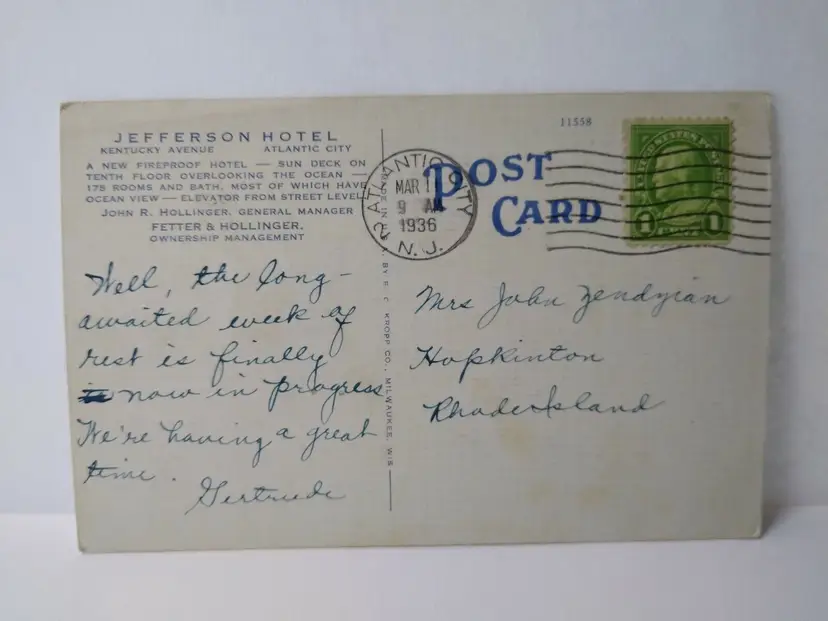 JEFFERSON HOTEL
KENTUCKY AVENUE ATLANTIC CITY
A NEW FIREPROOF HOTEL — SUN DECK ON
TENTH FLOOR OVERLOOKING THE OCEAN —
175 ROOMS AND BATH, MOST OF WHICH HAVE
OCEAN VIEW — ELEVATOR FROM STREET LEVEL
JOHN R. HOLLINGER, GENERAL MANAGER
FETTER & HOLLINGER,
OWNERSHIP MANAGEMENT
Well, the long-
awaited week of
rest is finally
now in progress
We're having a great
time.
Gertrude
BY E. C. KROPP CO., MILWAUKEE, WIS.
11558
POST
CARD
ATLANTIC CITY
MAR
9 AM
1936
N. J.
1 1
Mrs John
Hopkinton
Rhode Island